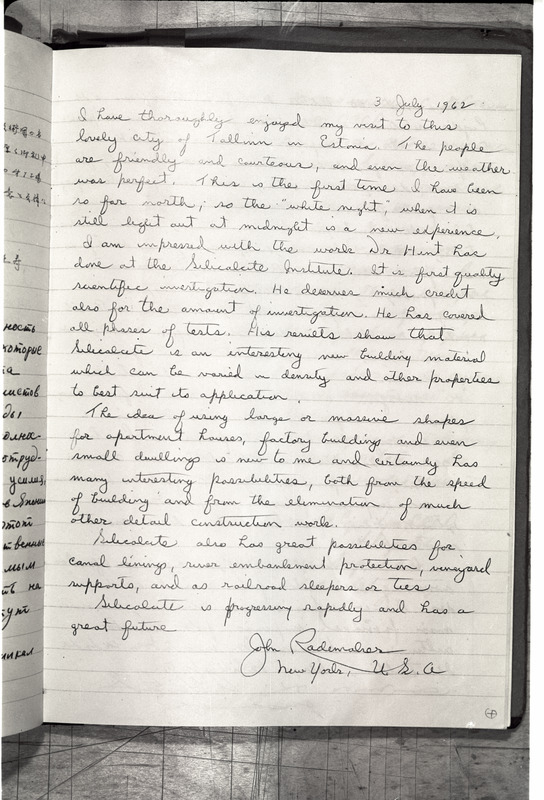 3 July 1962
I have thoroughly enjoyed my visit to this
lovely city of Tallinn in Estonia. The people
are friendly and courteous, and even the weather
was perfect. This is the first time I have been
so far north; so the "white night", when it is
still light out at midnight is a new experience.
I am impressed with the work Dr Hint has
done at the Silicalcite Institute. It is first quality
scientific investigation. He deserves much credit
also for the amount of investigation. He has covered
all phases of tests. His results show that
Silicalcite is an interesting new building material
which can be varied in density and other properties
to best suit its application.
The idea of using large or massive shapes
for apartment houses, factory buildings and even
small dwellings is new to me and certainly has
many interesting possibilities, both from the speed
of building and from the elimination of much
other detail construction work.
Silicalcite also has great possibilities for
canal linings, river embankment protection, vineyard
supports, and as railroad sleepers or ties
Silicalcite is progressing rapidly and has a
great future
John Rademaker
New York, U.S.A
ность
которые
на
листов
усилия,
этот
ственные
ть на